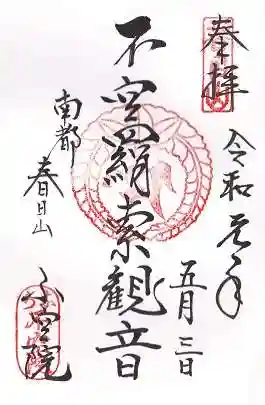 奉拝
令和元年
五月三日
不空羂索觀音
南都
春日山
不空院